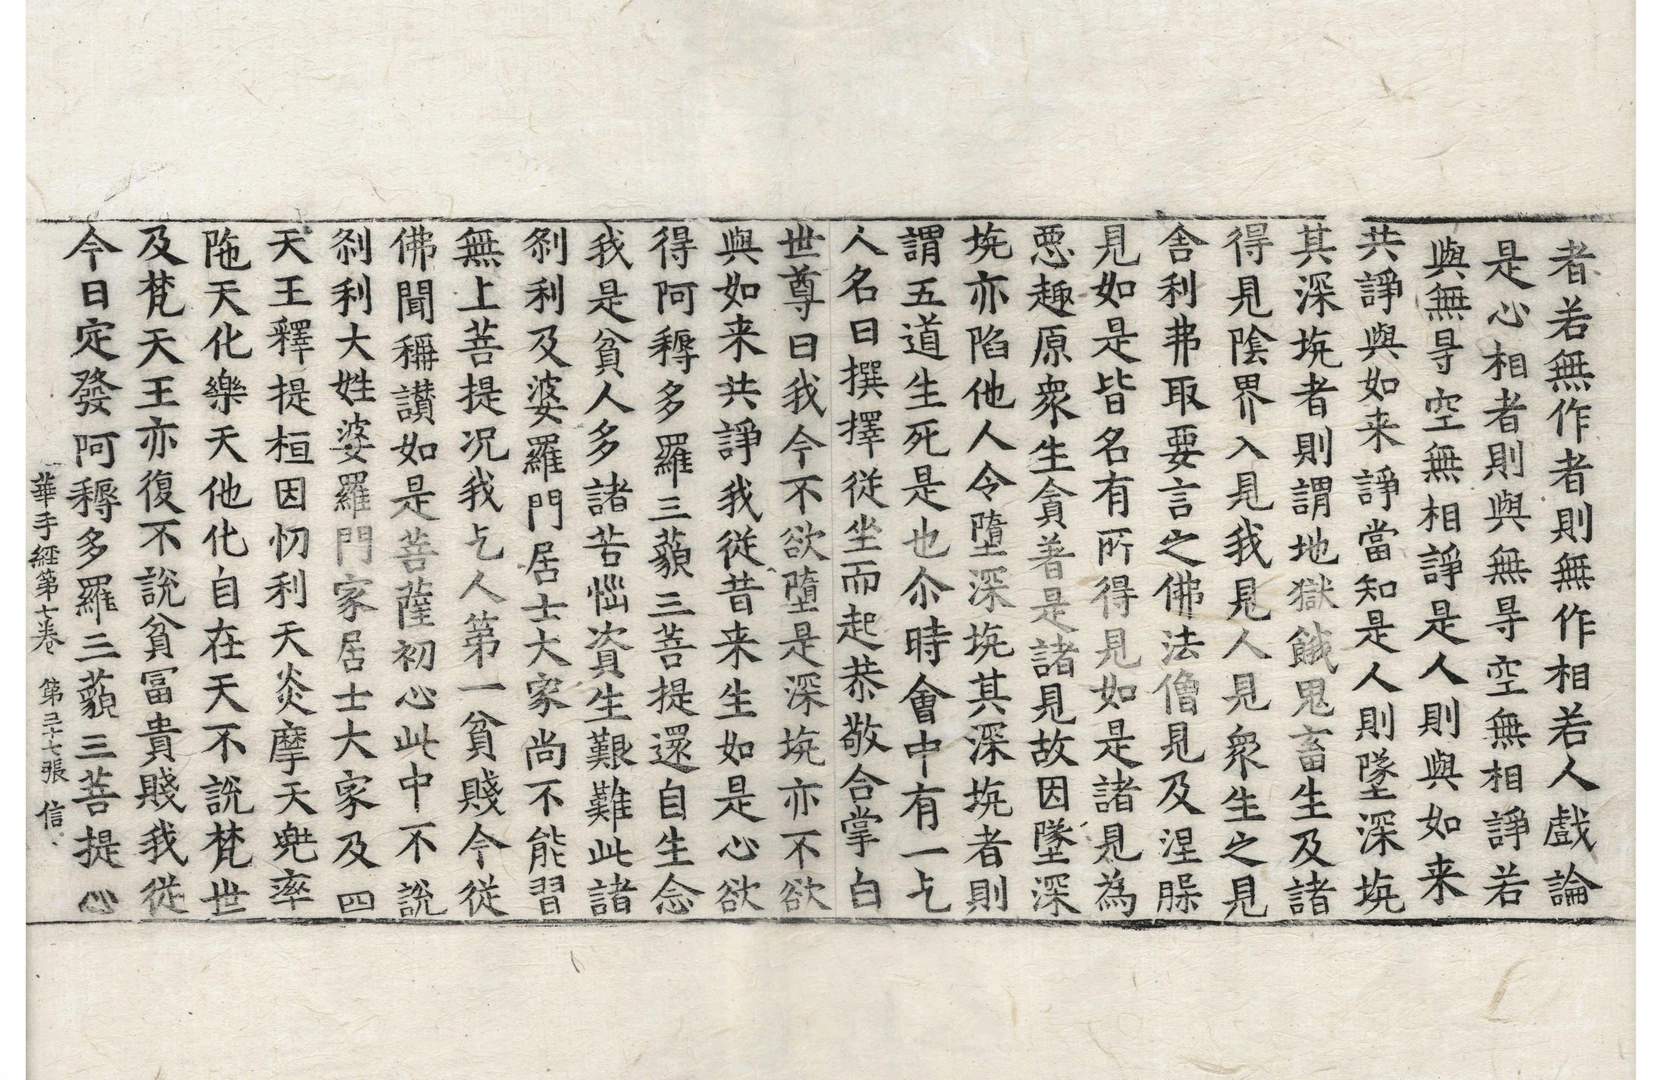 者若無作者則無作相若人戲論
是心相者則與無㝵空無相諍若
與無㝵空無相諍是人則與如来
共諍與如来諍當知是人則墜深坑
其深坑者則謂地獄餓鬼畜生及諸
得見陰界入見我見人見衆生之見
舎利弗取要言之佛法僧見及涅脲
見如是皆名有所得見如是諸見為
惡趣原衆生貪著是諸見故因墜深
坑亦陷他人令墮深坑其深坑者則
謂五道生死是也尒時會中有一乞
人名曰撰擇従坐而起恭敬合掌白
世尊曰我今不欲墮是深坑亦不欲
與如来共諍我従昔来生如是心欲
得阿耨多羅三藐三菩提還自生念
我是貧人多諸苦惱資生艱難此諸
刹利及婆羅門居士大家尚不能習
無上菩提况我乞人第一貧賤今従
佛聞稱讃如是菩薩初心此中不說
刹利大姓婆羅門家居士大家及四
天王釋提桓因忉利天炎摩天兠率
陁天化樂天他化自在天不說梵世
及梵天王亦復不說貧冨貴賤我従
今日定發阿耨多羅三藐三菩提心
華手經第七卷 第三十七張 信